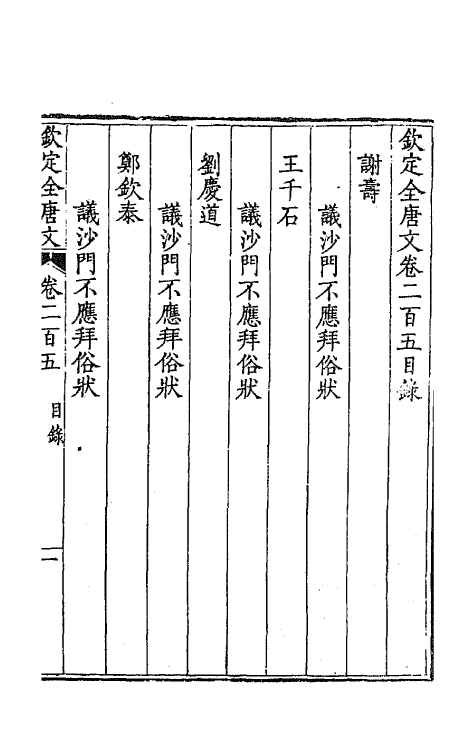 欽定全唐文卷二百五目錄
謝壽
議沙門不應拜俗狀
王千石
議沙門不應拜俗狀
劉慶道
議沙門不應拜俗狀
鄭欽泰
議沙門不應拜俗狀
欽定全唐文 卷二百五 目錄 一